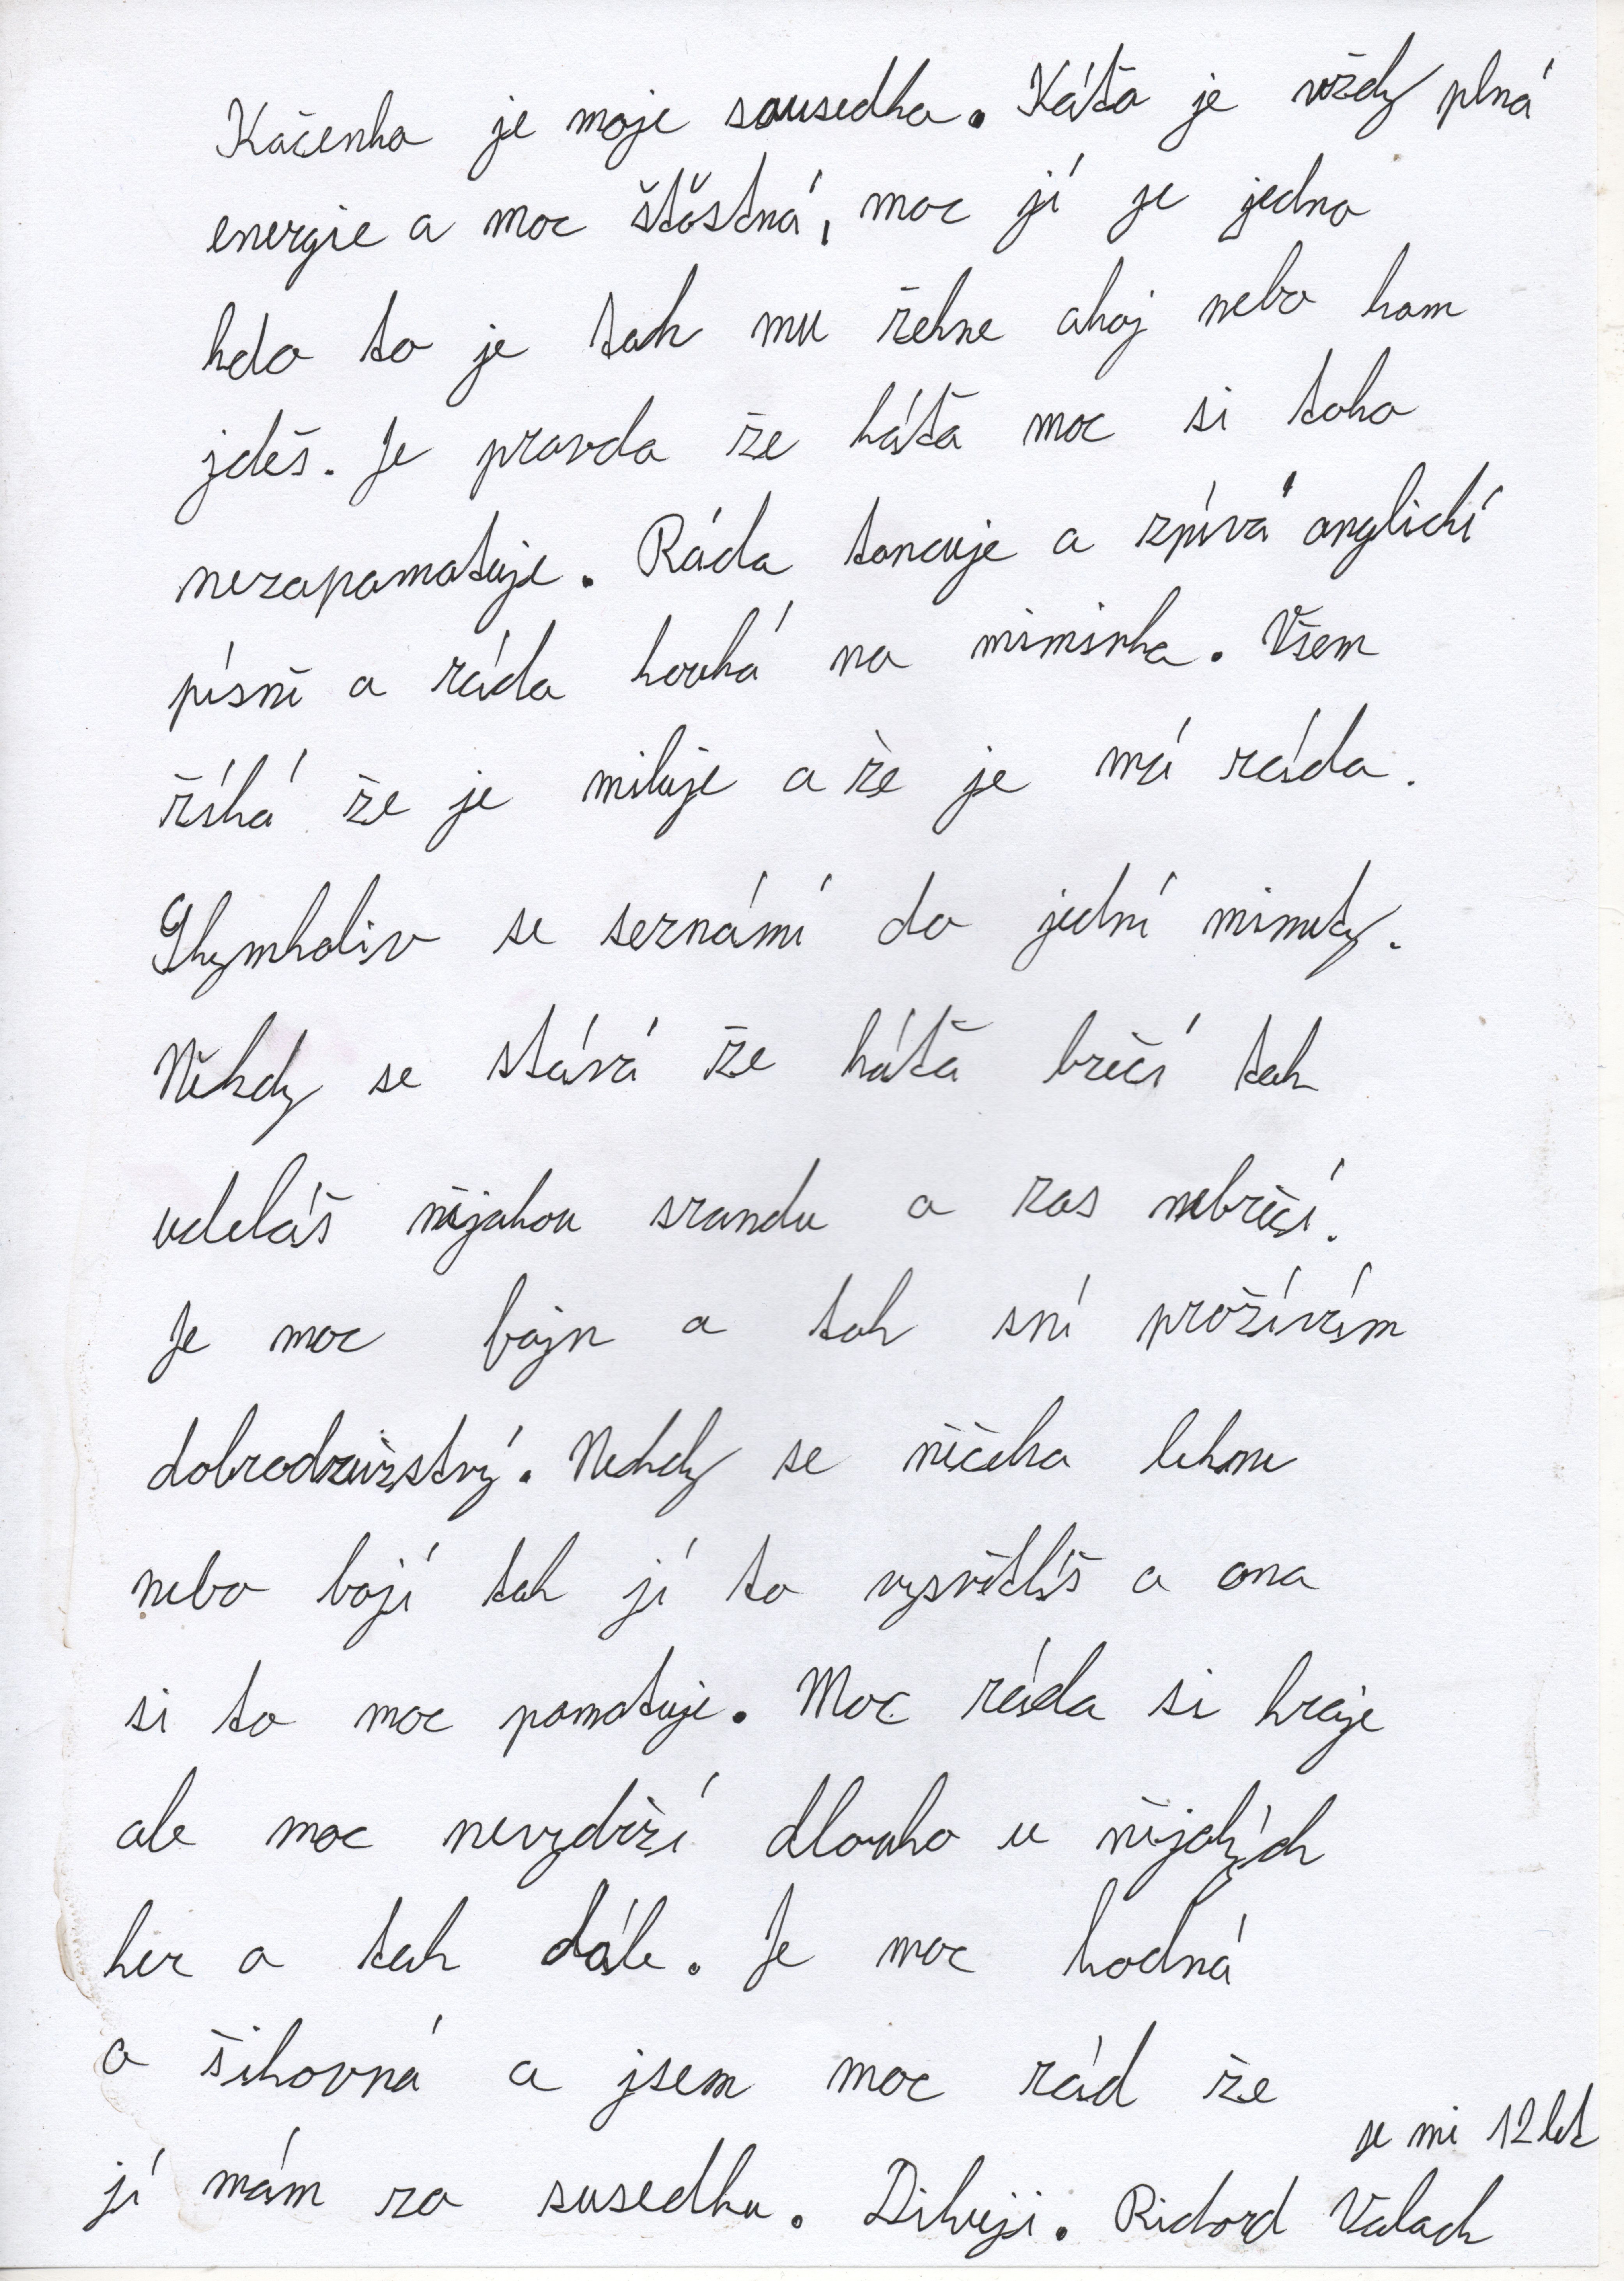 Kačenka je moje sousedka. Káťa je vždy plná
energie a moc štěstná, moc jí je jedno
kdo to je tak mu řekne ahoj nebo kam
jdeš. Je pravda že káťa moc si toho
nezapamatuje. Ráda tancuje a zpívá anglickí
písně a ráda kouká na miminka. Všem
říká že je miluje a že je má ráda.
se seznámí do jední minuty.
Někdy se stává že káťa brečí tak
udeláš nějakou srandu a zas nebrečí.
Je moc fajn a tak sní prožívím
dobrodružství. Nekdy se něčeho lekne
nebo bojí tak jí to vysvětlíš a ona
si to moc pamatuje. Moc ráda si hraje
ale moc nevydrží dlouho u nějakých
her a tak dále. Je moc hodná
a šikovná a jsem moc rád že
jí mám za susedku. Dikuji. Richard Valach
je mi 12 let